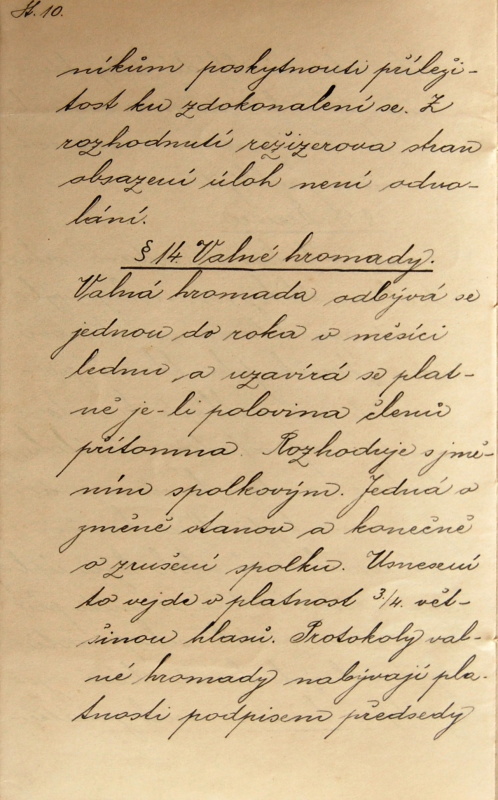 St. 10.
níkům poskytnouti příleži-
tost ku zdokonalení se. Z
rozhodnutí režizerova stran
obsazení úloh není odvo-
lání.
§ 14. Valné hromady.
Valná hromada odbývá se
jednou do roka v měsíci
lednu, a uzavírá se plat-
ně je-li polovina členů
přítomna. Rozhoduje s jmě-
ním spolkovým. Jedná o
změně stanov a konečně
o zrušení spolku. Usnesení
to vejde v platnost 3/4. vět-
šinou hlasů. Protokoly val-
né hromady nabývají pla-
tnosti podpisem předsedy